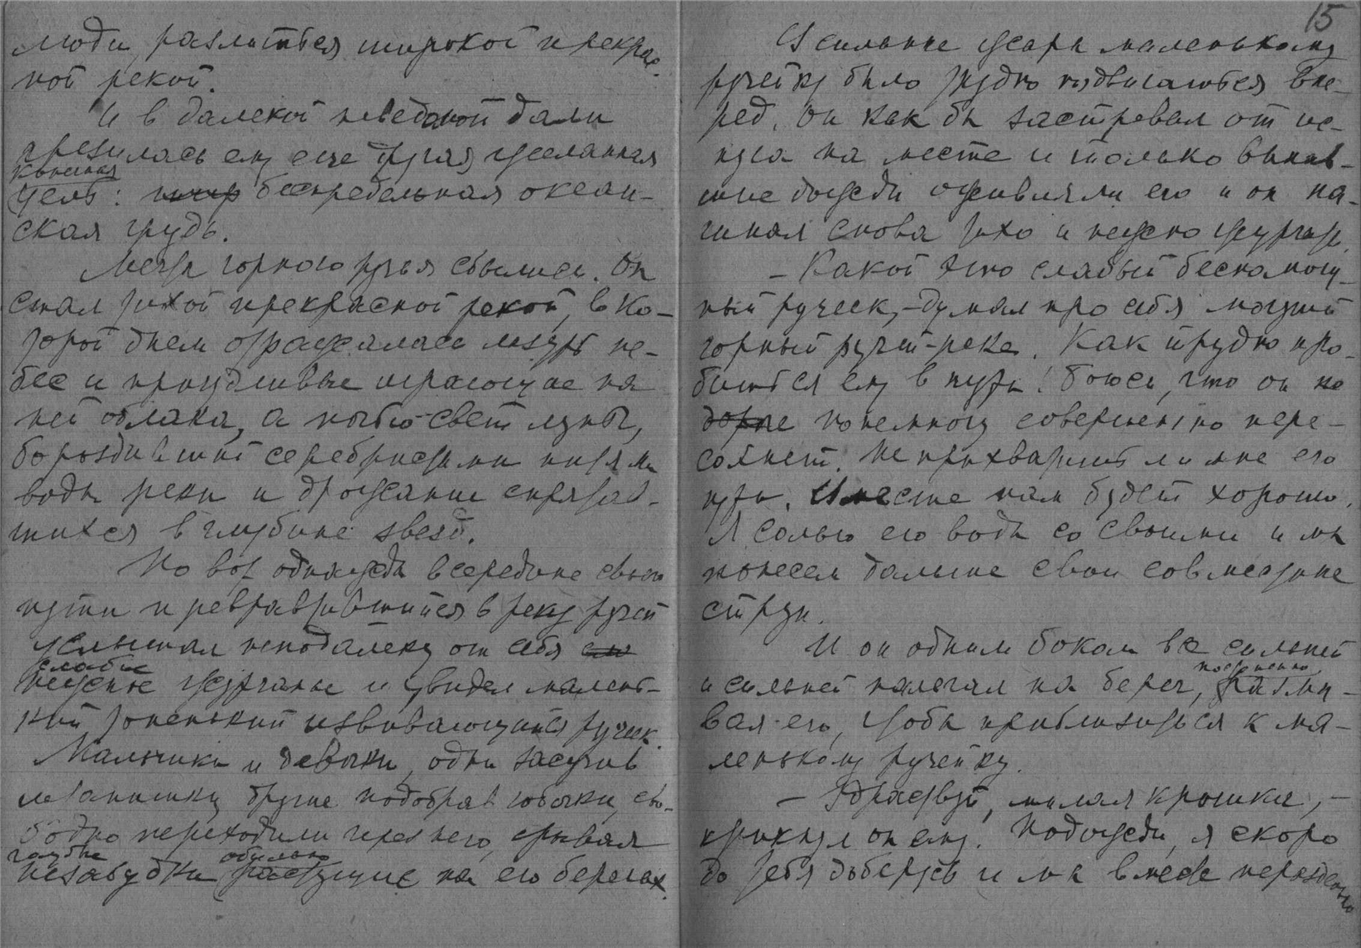 люди разлиться широкой прекрас-
ной рекой.
И в далекой неведомой дали
грезилась ему еще другая желанная
конечная
цель: беспредельная океан-
ская грудь.
Мечты горного ручья сбылись. Он
стал тихой прекрасной рекой, в ко-
торой днем отражалась лазурь не-
бес и причудливые играющие на
ней облака, а ночью свет луны,
бороздивший серебристыми нитями
воды реки и дрожание спрятав-
шихся в глубине звезд.
Но вот однажды в середине своего
пути превратившийся в реку ручей
услышал неподалеку от себя
слабое
нежное журчанье и увидел малень-
кий тоненький извивающийся ручеек.
Мальчики и девочки, одни засучив
штанишки другие подобрав юбочки, сво-
бодно переходили через него, срывая
голубые обильно
незабудки растущие на его берегах.
15
В сильные жары маленькому
ручейку было трудно подвигаться впе-
ред. Он как бы застревал от ис-
пуга на месте и только выпав-
шие дожди оживляли его и он на-
чинал снова тихо и нежно журчать.
– Какой это слабый беспомощ-
ный ручеек, – думал про себя могучий
горный ручей-река. Как трудно про-
биться ему в пути! Боюсь, что он по
дороге понемногу совершенно пере-
сохнет. Не прихватить ли мне его
пути. Вместе нам будет хорошо.
Я солью его воды со своими и мы
понесем дальше свои совместные
струи.
И он одним боком все сильней
постепенно
и сильней налегал на берег, размы-
вая его, чтобы приблизиться к ма-
ленькому ручейку.
– Здравствуй, милая крошка, –
крикнул он ему. Подожди, я скоро
до тебя доберусь и мы вместе нераздельно